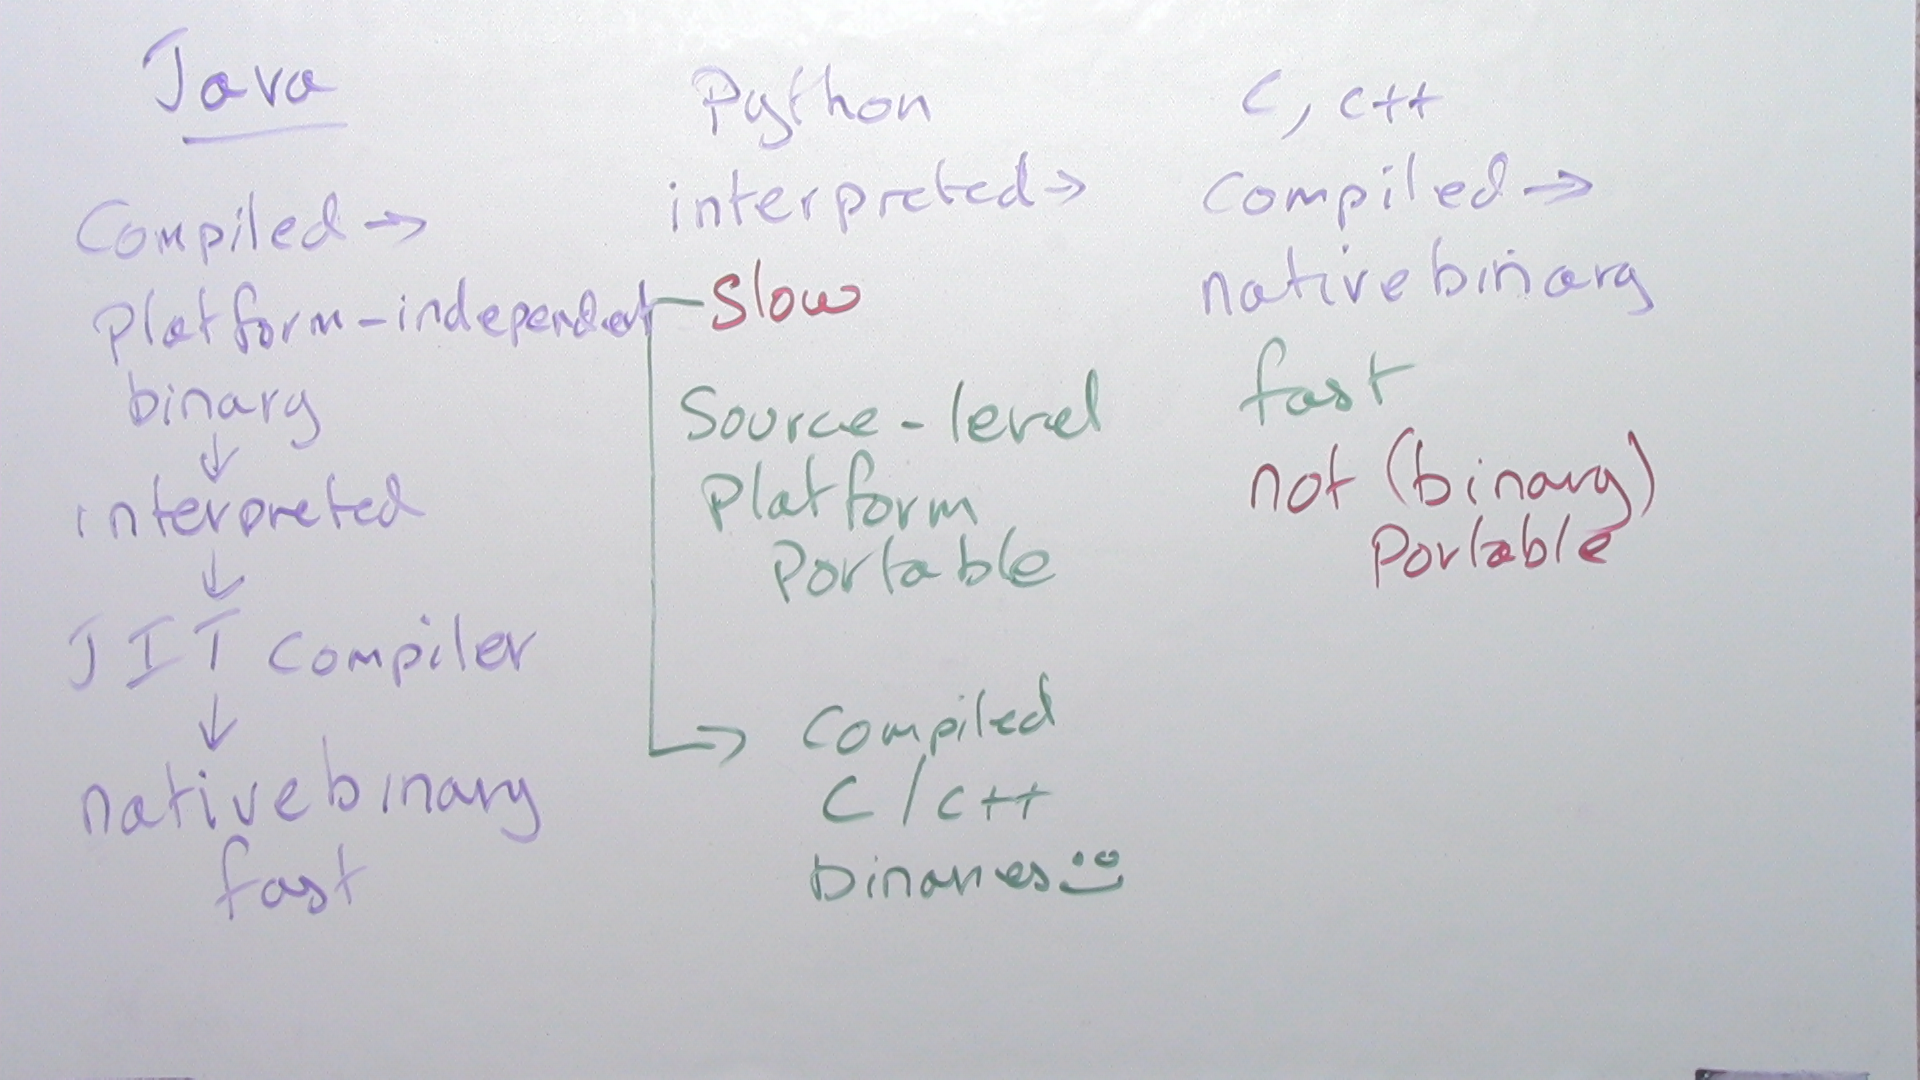 Java
Compiled →
Platform-independent
binary
↓
interpreted
↓
JIT compiler
↓
native binary
fast
Python
interpreted →
Slow
Source-level
Platform
Portable
Compiled
C/C++
binaries
C, C++
Compiled →
native binary
fast
not (binary)
Portable